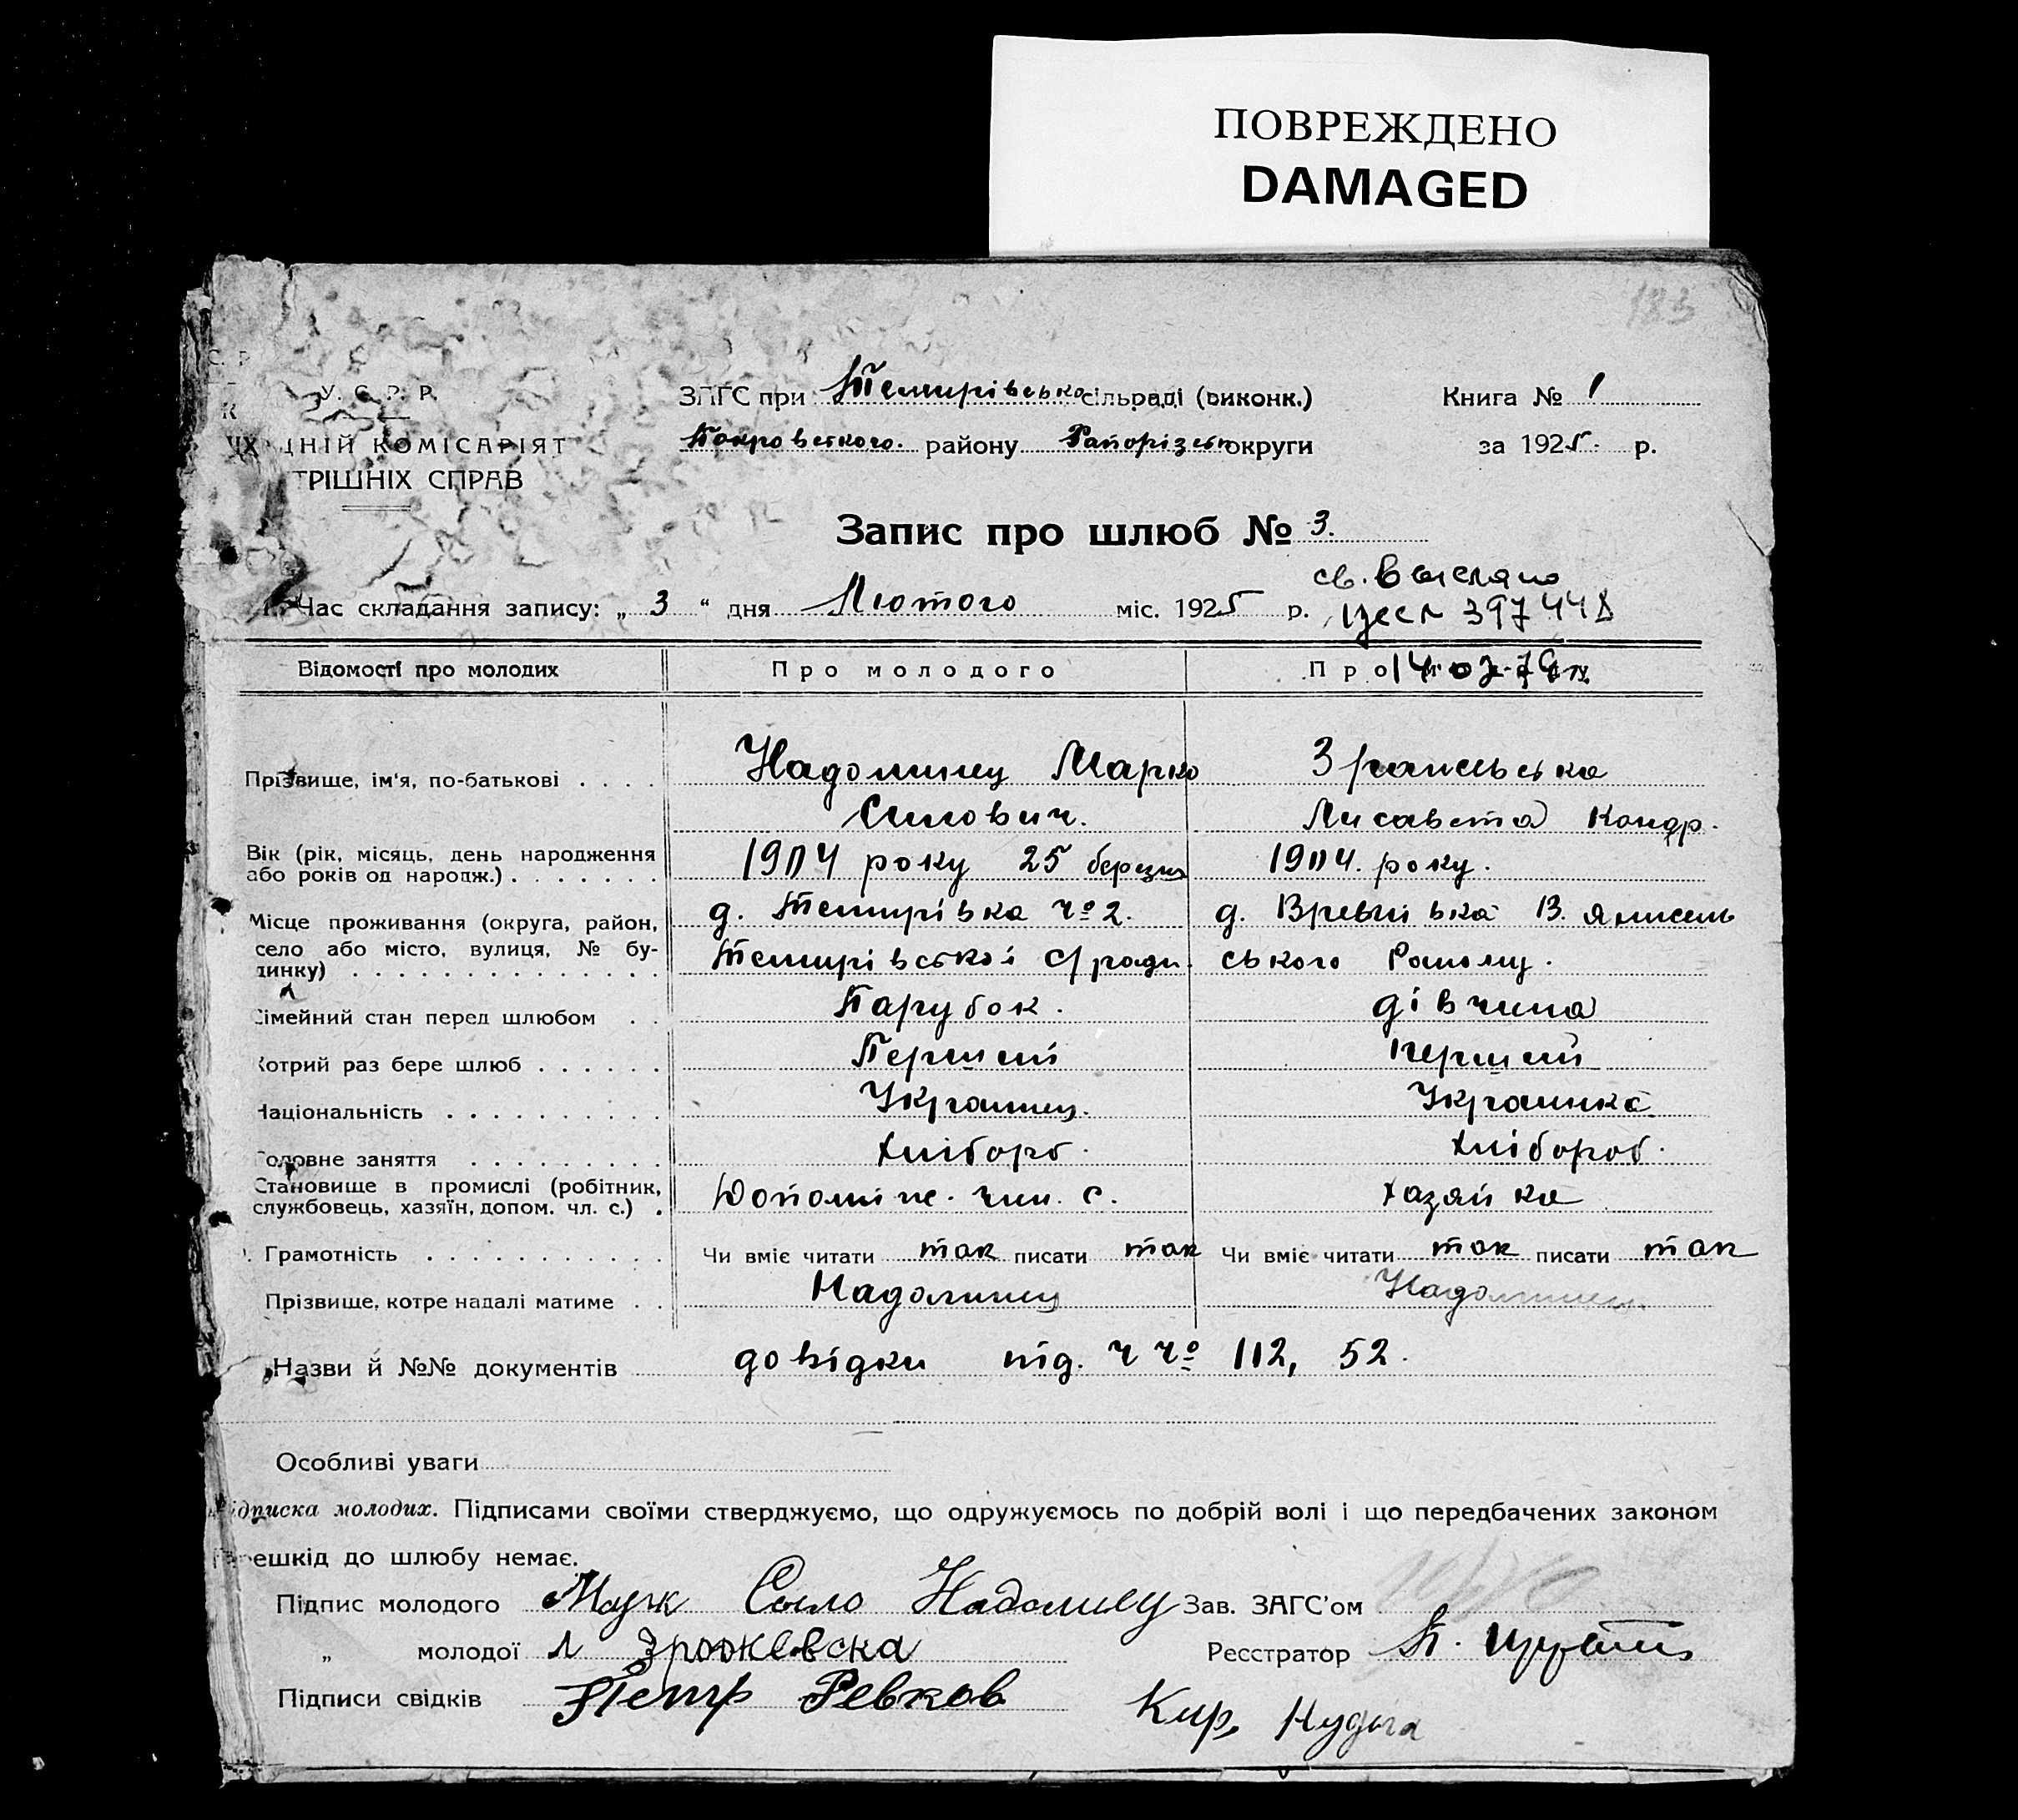 ПОВРЕЖДЕНО
DAMAGED
183
У. С. Р. Р.
ЗАГС при Темирівсько сільраді (виконк.)
Книга № 1
ДНІЙ КОМІСАРІЯТ
Покровського. району Запорізько округи
за 1925. р.
ТРІШНІХ СПРАВ
Запис про шлюб № 3.
св. Выслано
Час складання запису: „ 3 “ дня Лютого міс. 1925 р.
397448
Відомості про молодих
Про молодого
Про
14 03-79
Прізвище, ім'я, по-батькові
Надолинец Марко
Силович.
Лисавета Кондр.
Вік (рік, місяць, день народження
або років од народж.)
1904 року 25 березня
1904. року.
Місце проживання (округа, район,
село або місто, вулиця, № бу-
динку)
д. Темирівка № 2.
Темирівської с/ради.
д. В. Янисель
ського Району.
Сімейний стан перед шлюбом
Парубок.
дівчина
Котрий раз бере шлюб
Перший
перший
Національність
Українец.
Українка
Головне заняття
Хлібороб.
Хлібороб.
Становище в промислі (робітник,
службовець, хазяїн, допом. чл. с.)
Допоміж. член. с.
хазяйка
Грамотність
Чи вміє читати так писати так
Чи вміє читати так писати так
Прізвище, котре надалі матиме
Надолинец
Надолинец.
Назви й №№ документів довідки під. Ч Ч 112, 52.
Особливі уваги
Підписка молодих. Підписами своїми стверджуємо, що одружуємось по добрій волі і що передбачених законом
перешкід до шлюбу немає.
Підпис молодого Марк Сыло Надолинец
Зав. ЗАГС'ом
„ молодої Л Зражевска
Реєстратор
Підписи свідків Петр Ревков
Кир, Нудьга